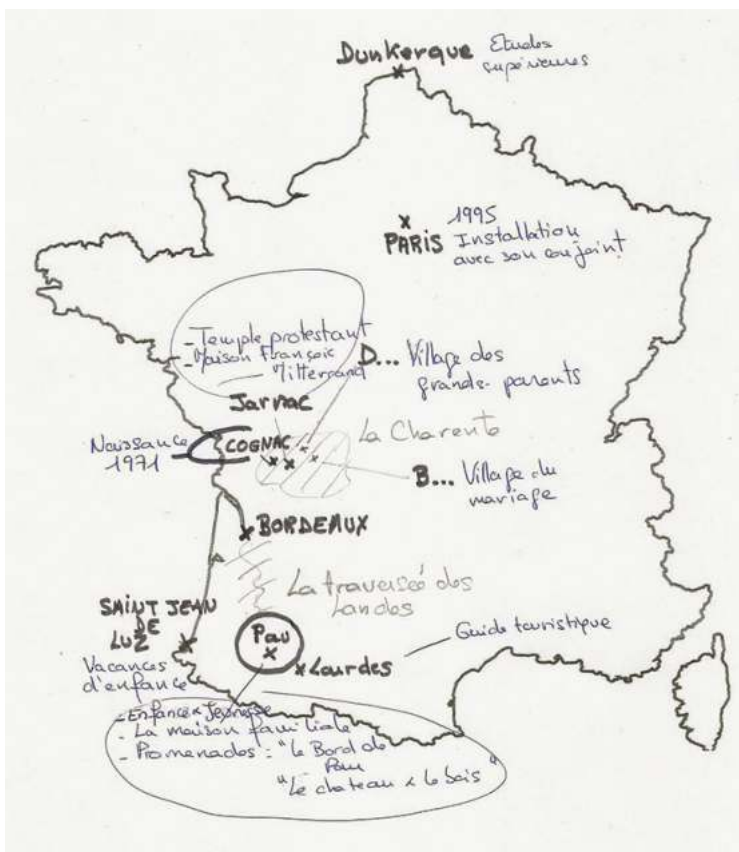 Dunkerque Etudes
supérieures
1995
PARIS Installation
avec son conjoint
- Temple protestant
- Maison François
Mitterrand
D... Village des
grands-parents
Jarnac
La Charente
Naissance
1971
COGNAC
B... Village du
mariage
BORDEAUX
La traversée des
Landes
SAINT JEAN
DE
LUZ
Vacances
d'enfance
Pau
Lourdes
Guide touristique
- Enfance & Jeunesse
- La maison familiale
- Promenades : "le Bord de
Pau
"Le chateau & le bois"